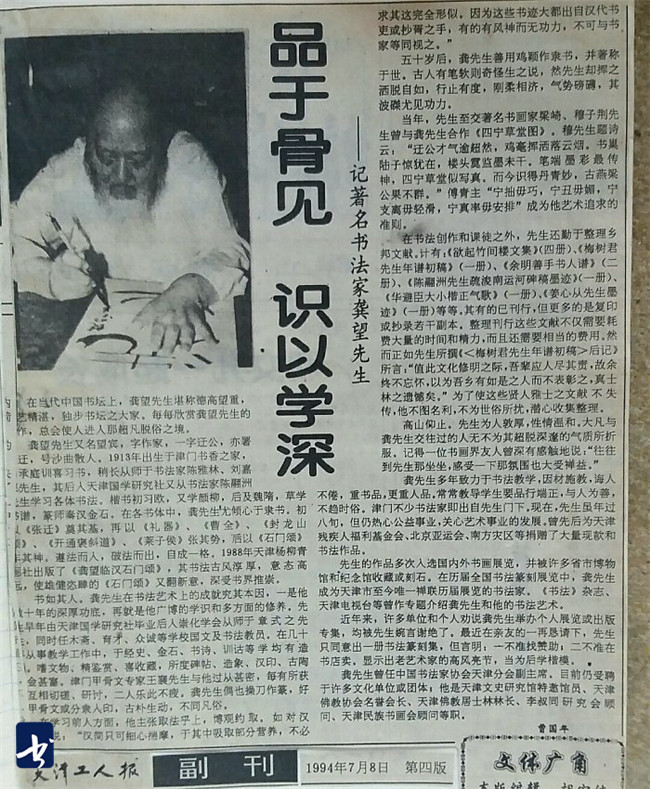 品于骨见 识以学深
——记著名书法家龚望先生
在当代中国书坛上，龚望先生堪称德高望重，
艺精湛，独步书坛之大家。每每欣赏龚望先生的
作，总会使人进入那超凡脱俗之境。
龚望先生又名望宾，字作家，一字迂公，亦署
迂，号沙曲散人。1913年出生于津门书香之家，
承庭训喜习书，稍长从师于书法家陈雅林、刘嘉
先生，其后入天津国学研究社又从书法家陈翮洲
先生学习各体书法。楷书初习欧，又学颜柳，后及魏隋，草学
书谱，篆师秦汉金石。在各书体中，龚先生尤倾心于隶书。初
以《张迁》奠其基，再以《礼器》、《曹全》、《封龙山
》、《开通褒斜道》、《莱子侯》张其势，后以《石门颂》
其神。遵法而入，破法而出，自成一格，1988年天津杨柳青
画社出版了《龚望临汉石门颂》，其书法古风淳厚，意态高
远，使雄健恣肆的《石门颂》又翻新意，深受书界推崇。
书如其人。龚先生在书法艺术上的成就究其本因，一是他
数十年的深厚功底，再就是他广博的学识和多方面的修养。先
生早年由天津国学研究社毕业后人崇化学会从师于章式之先
生，同时任木斋、育才、众诚等学校国文及书法教员。在几十
年从事教学工作中，于经史、金石、书诗、训诂等学均有造
，嗜文物，精鉴赏，喜收藏，所度碑帖、造象、汉印、古陶
金甚富。津门甲骨文专家王襄先生与他过从甚密，每有所获
互相切磋、研讨，二人乐此不疲。龚先生偶也操刀作篆，好
甲骨文或分隶人印，古朴生动，不同凡俗。
在学习前人方面，他主张取法乎上，博观约取。如对汉
说：“汉简只可细心揣摩，于其中吸取部分营养，不必
求其这完全形似。因为这些书迹大都出自汉代书
吏或抄胥之手，有的有风神而无功力，不可与书
家等同视之。”
五十岁后，龚先生善用鸡颖作隶书，并著称
于世。古人有笔软则奇怪生之说，然先生却挥之
洒脱自如，行止有度，刚柔相济，气势磅礴，其
波磔尤见功力。
当年，先生至交著名书画家梁崎、穆子荆先
生曾与龚先生合作《四宁草堂图》。穆先生题诗
云：“迂公才气逾超然，鸡毫挥洒落云烟。书巢
陆子惊犹在，楼头霓监墨未干。笔端墨彩最传
神，四宁草堂似写真。而今识得丹青妙，古燕梁
公果不群。”傅青主“宁拙毋巧，宁丑毋媚，宁
支离毋轻滑，宁真率毋安排”成为他艺术追求的
准则。
在书法创作和课徒之外，先生还勤于整理乡
邦文献。计有：《欲起竹间楼文集》（四册）、《梅树君
先生年谱初稿》（一册）、《余明善手书人谱》（二
册）、《陈翮洲先生疏浚南运河碑稿墨迹》（一册）、
《华避臣大小楷正气歌》（一册）、《姜心从先生墨
迹》（一册）等等。其有的已刊行，但更多的是复印
或抄录若干副本。整理刊行这些文献不仅需要耗
费大量的时间和精力，而且还需要相当的费用。然
而正如先生所撰《<梅树君先生年谱初稿>后记》
所言：“值此文化修明之际，吾辈应人尽其责，故余
终不忘怀，以为吾乡有如是之人而不表彰之，真士
林之遗憾矣。”为了使这些贤人雅士之文献不失
传，他不图名利，不为世俗所扰，潜心收集整理。
高山仰止。先生为人敦厚，性情温和。大凡与
龚先生交往过的人无不为其超脱深邃的气质所折
服。记得一位书画界友人曾深有感触地说：“往往
到先生那坐坐，感受一下那氛围也大受裨益。”
龚先生多年致力于书法教学，因材施教，诲人
不倦，重书品，更重人品，常常教导学生要品行端正，与人为善，
不趋时俗。津门不少书法家即出自先生门下。现在，先生虽年过
八旬，但仍热心公益事业，关心艺术事业的发展，曾先后为天津
残疾人福利基金会、北京亚运会、南方灾区等捐赠了大量现款和
书法作品。
先生的作品多次入选国内外书画展览，并被许多省市博物
馆和纪念馆收藏或刻石。在历届全国书法篆刻展览中，龚先生
成为天津市至今唯一蝉联历届展览的书法家。《书法》杂志、
天津电视台等曾作专题介绍龚先生和他的书法艺术。
近年来，许多单位和个人劝说龚先生举办个人展览或出版
专集，均被先生婉言谢绝了。最近在亲友的一再恳请下，先生
只同意出一册书法篆刻集，但言明：一不准找赞助；二不准在
书店卖。显示出老艺术家的高风亮节，当为后学楷模。
龚先生曾任中国书法家协会天津分会副主席。目前仍受聘
于许多文化单位或团体；他是天津文史研究馆特邀馆员、天津
佛教协会名誉会长、天津佛教居士林林长、李叔同研究会顾
问、天津民族书画会顾问等职。
曹国年
天津工人报 副刊 1994年7月8日 第四版
文体广角